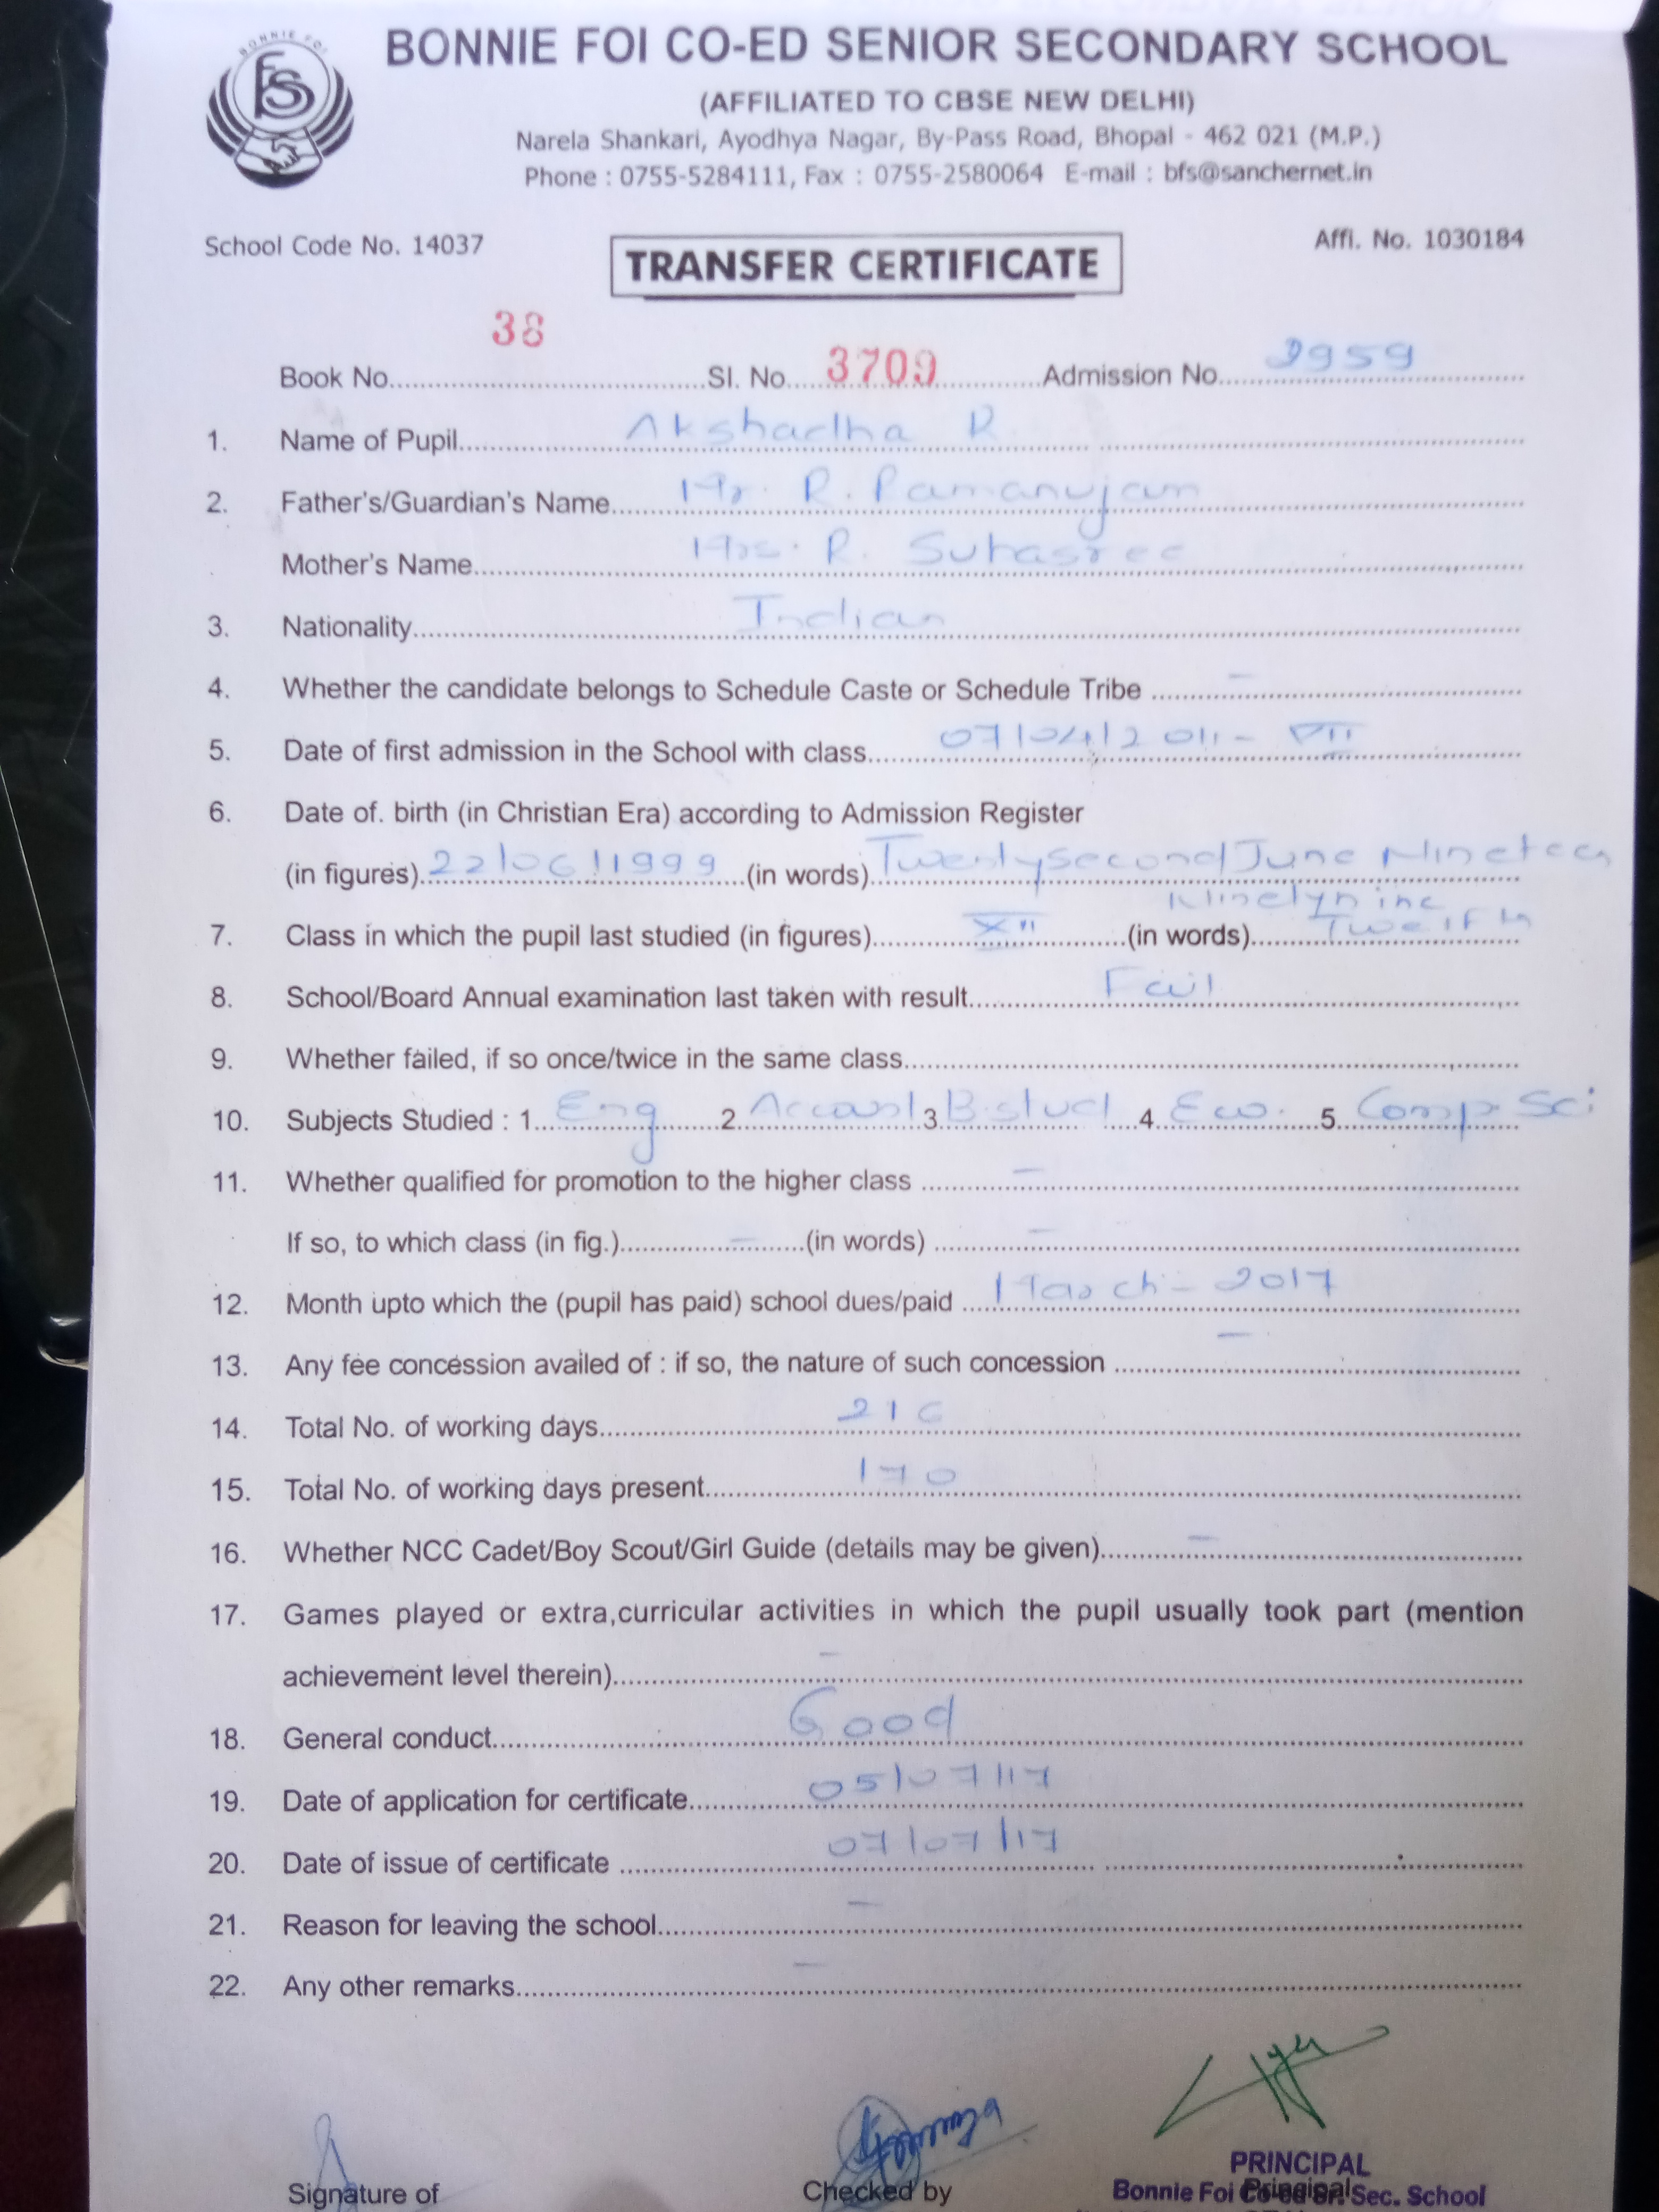 BONNIE FOI
FS
BONNIE FOI CO-ED SENIOR SECONDARY SCHOOL
(AFFILIATED TO CBSE NEW DELHI)
Narela Shankari, Ayodhya Nagar, By-Pass Road, Bhopal - 462 021 (M.P.)
Phone : 0755-5284111, Fax : 0755-2580064 E-mail : bfs@sanchernet.in
School Code No. 14037 Affi. No. 1030184
TRANSFER CERTIFICATE
Book No. 38 Sl. No. 3709 Admission No. 2959
1. Name of Pupil Akshadha R.
2. Father's/Guardian's Name Mr. R. Ramanujam
Mother's Name Mrs. R. Suhasree
3. Nationality Indian
4. Whether the candidate belongs to Schedule Caste or Schedule Tribe –
5. Date of first admission in the School with class 07/04/2011 - VII
6. Date of. birth (in Christian Era) according to Admission Register
(in figures) 22/06/1999 (in words) Twenty second June Nineteen
Ninety nine
7. Class in which the pupil last studied (in figures) XII (in words) Twelfth
8. School/Board Annual examination last taken with result Fail
9. Whether failed, if so once/twice in the same class
10. Subjects Studied : 1. Eng 2. Account 3. B. stud 4. Eco. 5. Comp. Sci
11. Whether qualified for promotion to the higher class –
If so, to which class (in fig.) – (in words) –
12. Month upto which the (pupil has paid) school dues/paid March - 2017
13. Any fee concession availed of : if so, the nature of such concession –
14. Total No. of working days 216
15. Total No. of working days present 170
16. Whether NCC Cadet/Boy Scout/Girl Guide (details may be given) –
17. Games played or extra,curricular activities in which the pupil usually took part (mention
achievement level therein) –
18. General conduct Good
19. Date of application for certificate 05/07/17
20. Date of issue of certificate 07/07/17
21. Reason for leaving the school –
22. Any other remarks –
PRINCIPAL
Signature of Checked by Principal
Bonnie Foi Co-ed Sr. Sec. School